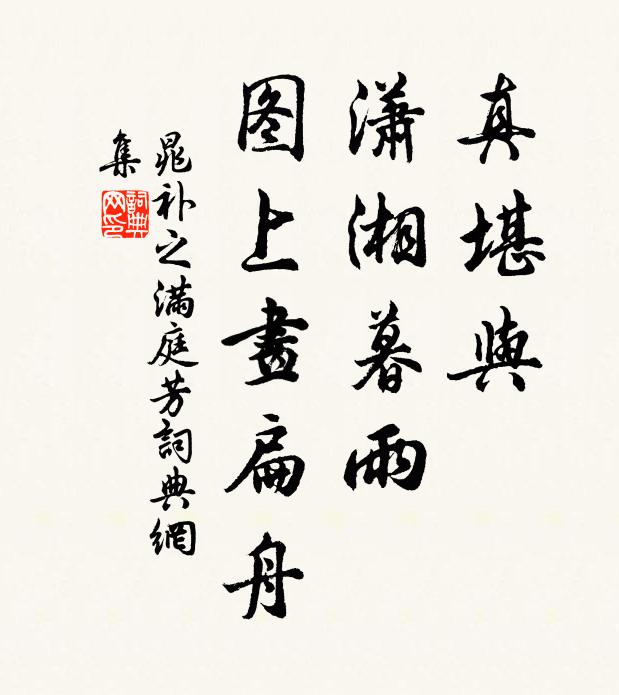 真堪與
瀟湘暮雨
图上畫扁舟
晁补之滿庭芳詞典網
集
詞典
网印